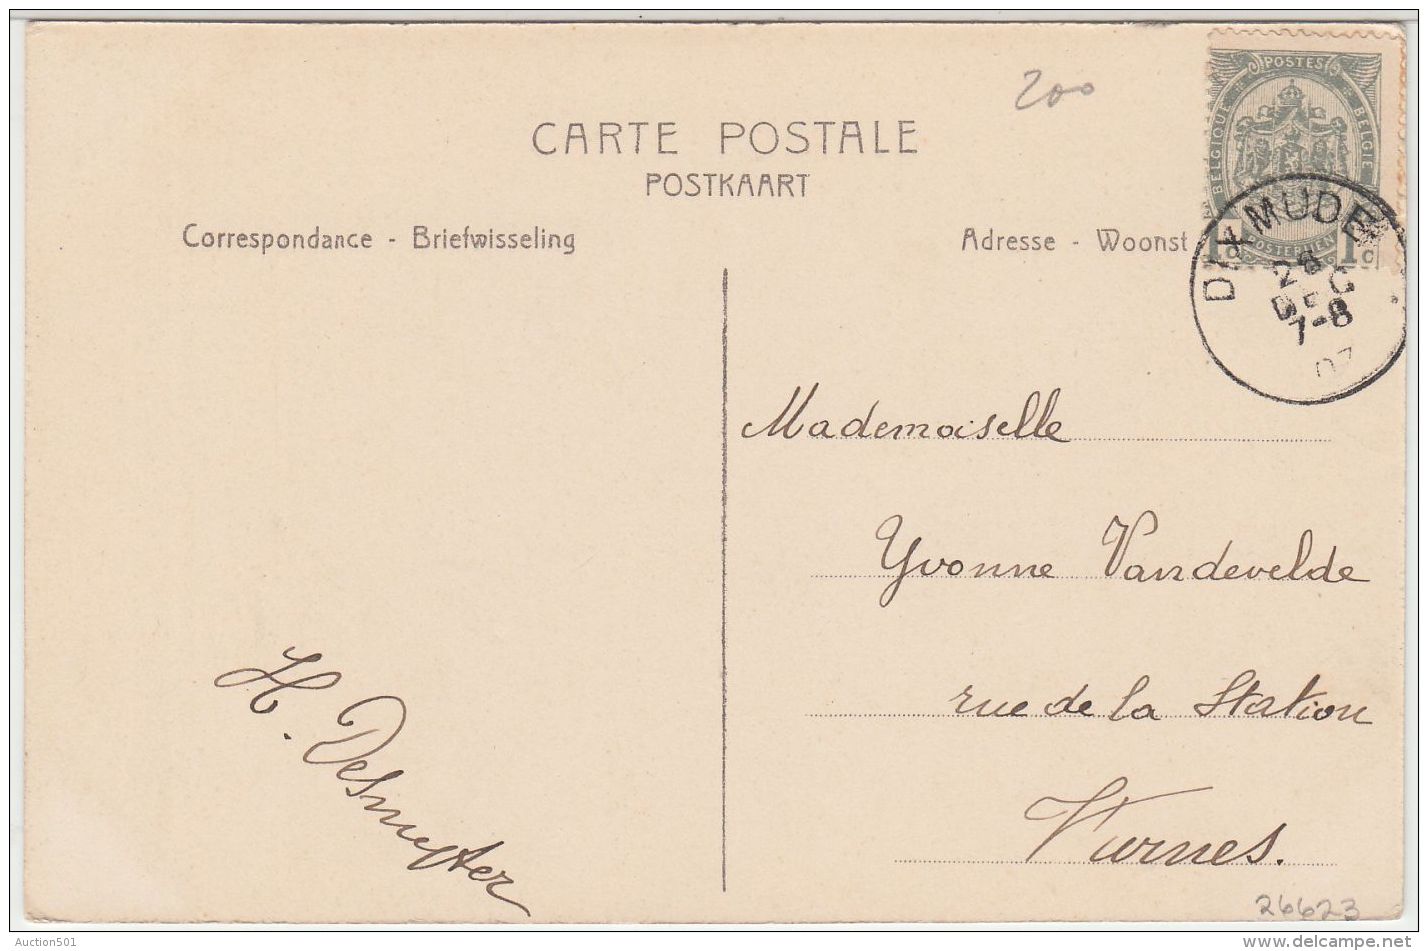 200
CARTE POSTALE
POSTKAART
Correspondance - Briefwisseling
Adresse - Woonst
POSTES
BELGIQUE
BELGIE
POSTERIJEN
1c 1c
DIXMUDE
28
DEC
7-8
07
Mademoiselle
Yvonne Vandevelde
rue de la Station
Furnes.
H. Desmyter
26623
Auction501
delcampe.net